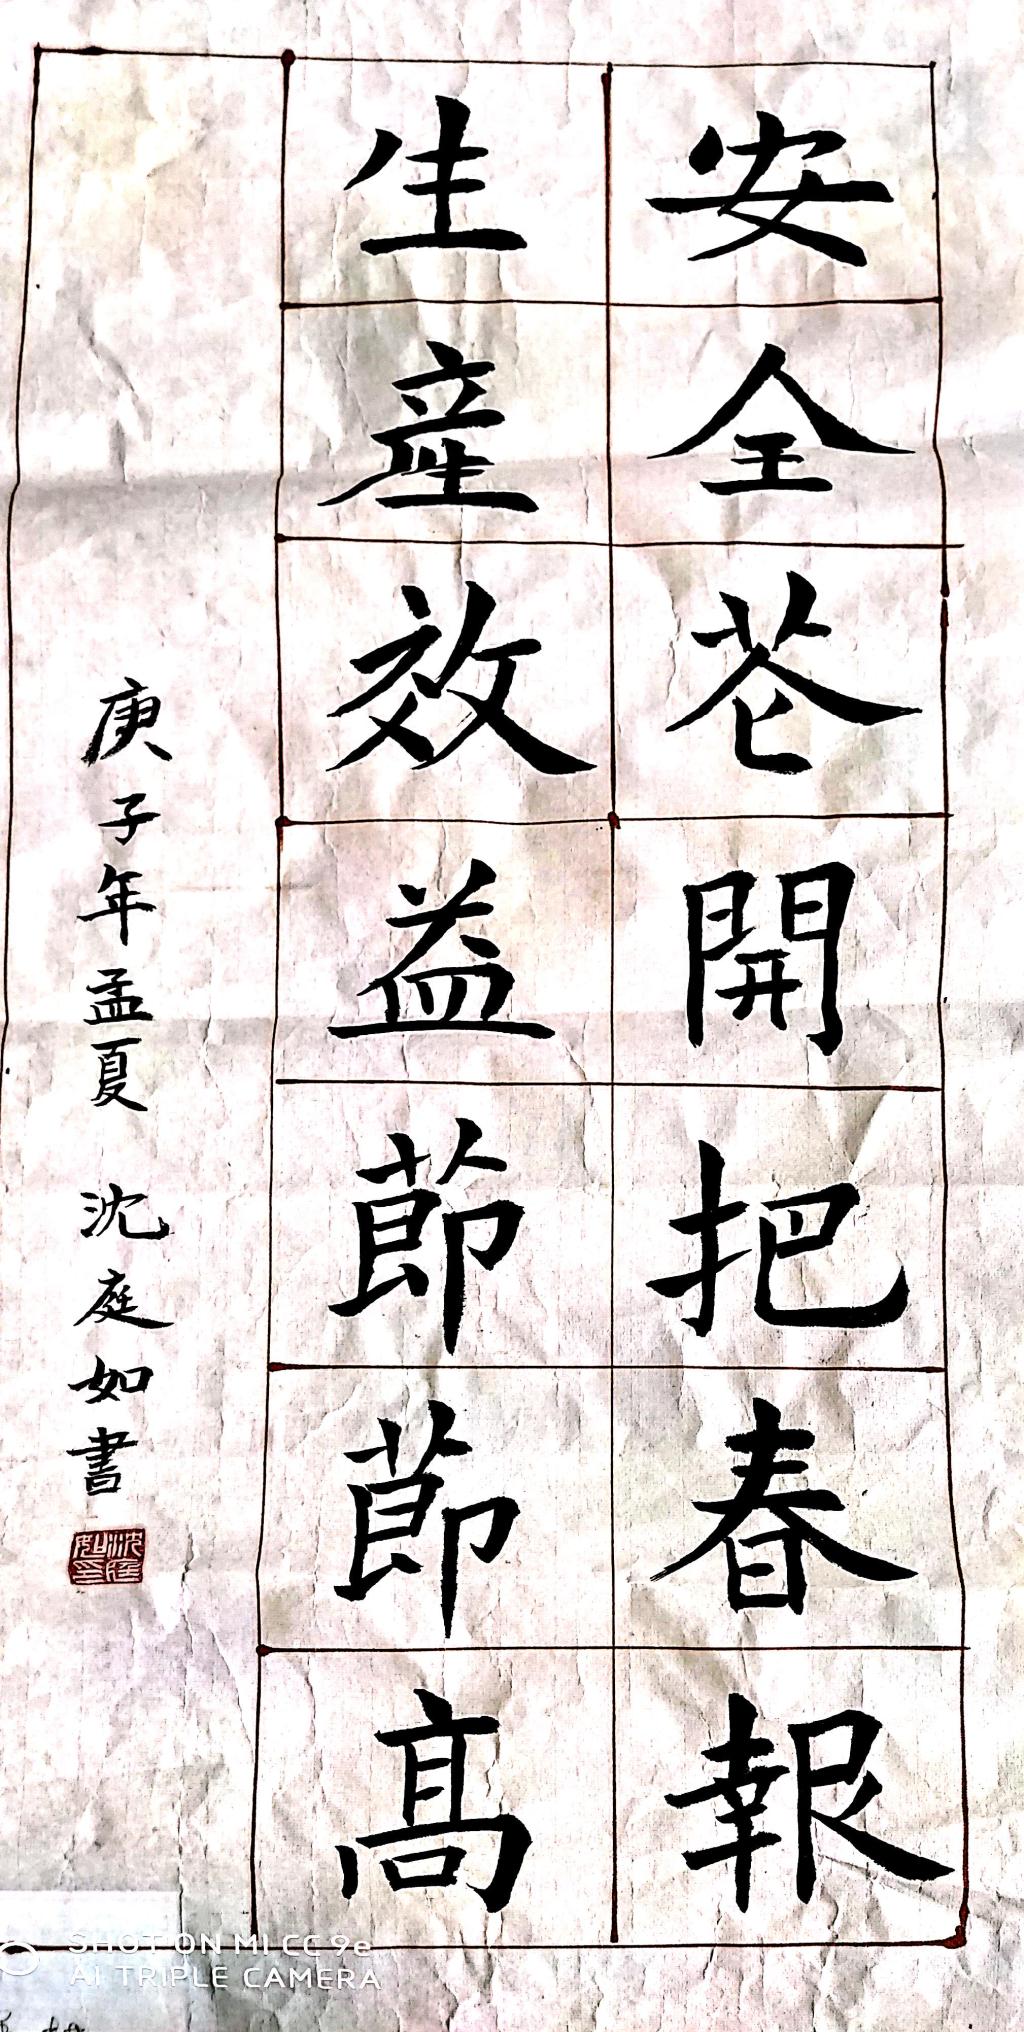 安全苍開把春報
生産效益節節高
庚子年孟夏 沈庭如書
沈庭如印
SHOT ON MI CC 9e
AI TRIPLE CAMERA